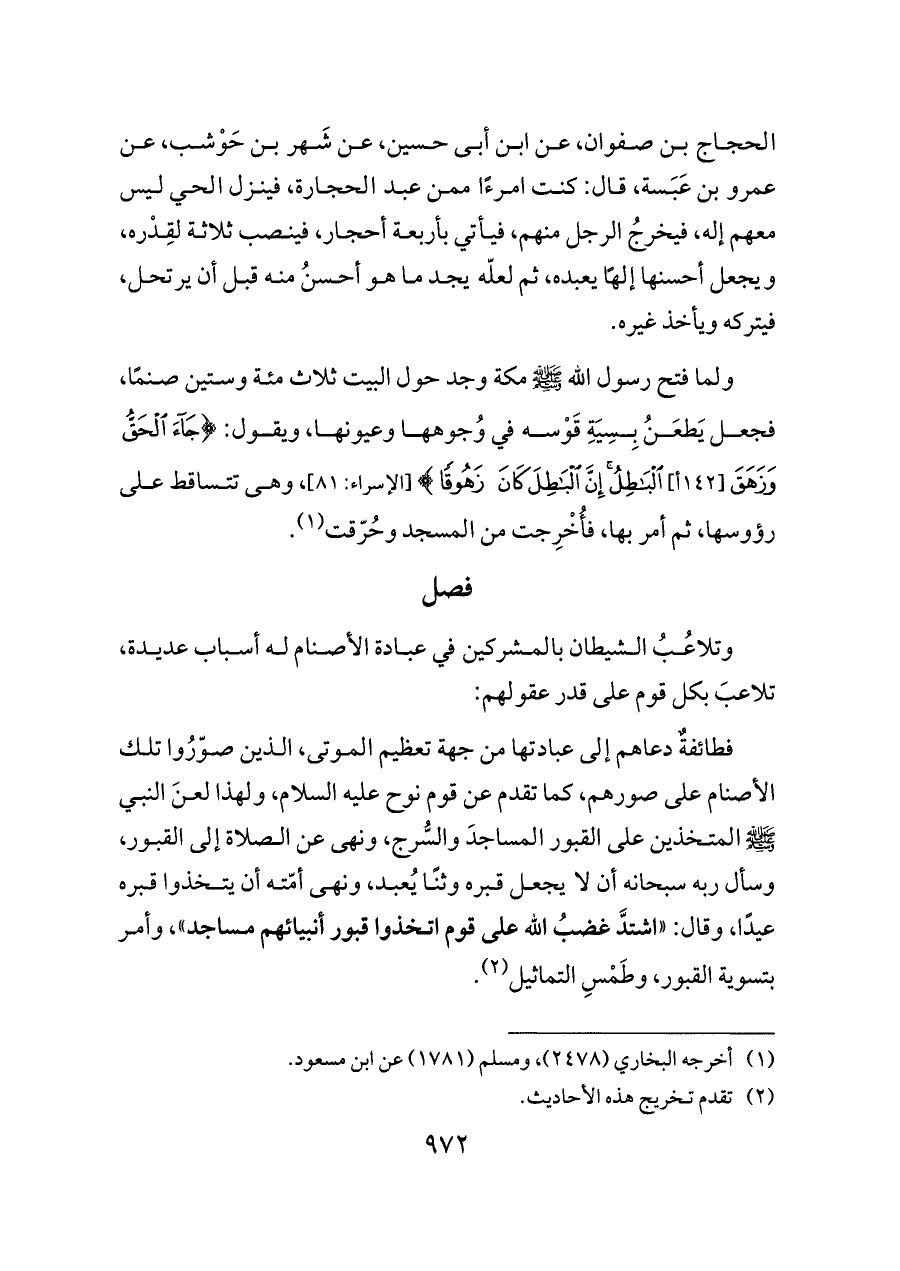 الحجاج بن صفوان، عن ابن أبى حسين، عن شَهر بن حَوْشب، عن
عمرو بن عَبَسة، قال: كنت امرءًا ممن عبد الحجارة، فينزل الحي ليس
معهم إله، فيخرجُ الرجل منهم، فيأتي بأربعة أحجار، فينصب ثلاثة لقِدْره،
ويجعل أحسنها إلهًا يعبده، ثم لعلّه يجد ما هو أحسنُ منه قبل أن يرتحل،
فيتركه ويأخذ غيره.
ولما فتح رسول الله ﷺ مكة وجد حول البيت ثلاث مئة وستين صنمًا،
فجعل يَطعَنُ بِسِيَةِ قَوْسه في وُجوهها وعيونها، ويقول: ﴿جَآءَ ٱلۡحَقُّ
وَزَهَقَ [١٤٢أ] ٱلۡبَٰطِلُۚ إِنَّ ٱلۡبَٰطِلَ كَانَ زَهُوقٗا﴾ [الإسراء: ٨١]، وهى تتساقط على
رؤوسها، ثم أمر بها، فأُخْرِجت من المسجد وحُرّقت(١).
فصل
وتلاعُبُ الشيطان بالمشركين في عبادة الأصنام له أسباب عديدة،
تلاعبَ بكل قوم على قدر عقولهم:
فطائفةٌ دعاهم إلى عبادتها من جهة تعظيم الموتى، الذين صوّرُوا تلك
الأصنام على صورهم، كما تقدم عن قوم نوح عليه السلام، ولهذا لعنَ النبي
ﷺ المتخذين على القبور المساجدَ والسُّرج، ونهى عن الصلاة إلى القبور،
وسأل ربه سبحانه أن لا يجعل قبره وثنًا يُعبد، ونهى أمّته أن يتخذوا قبره
عيدًا، وقال: «اشتدَّ غضبُ الله على قوم اتخذوا قبور أنبيائهم مساجد»، وأمر
بتسوية القبور، وطَمْسِ التماثيل(٢).
(١) أخرجه البخاري (٢٤٧٨)، ومسلم (١٧٨١) عن ابن مسعود.
(٢) تقدم تخريج هذه الأحاديث.
٩٧٢